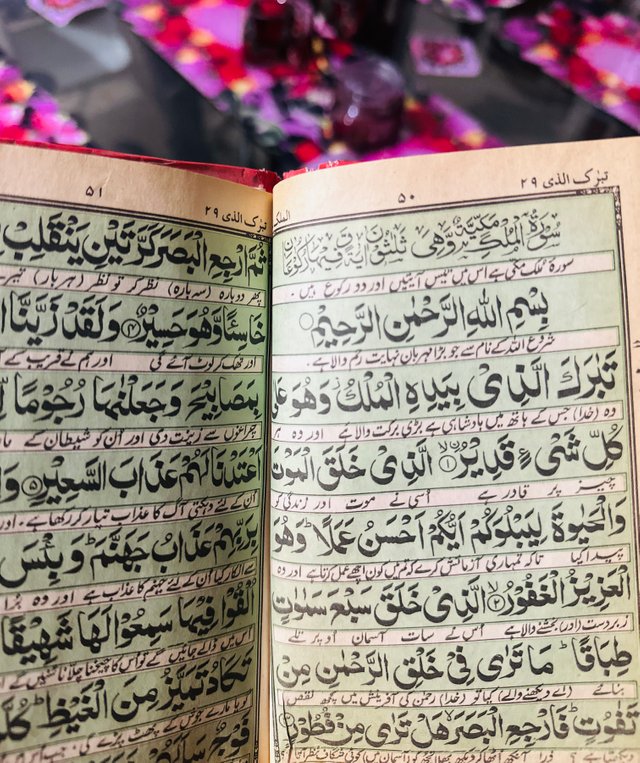 تبٰرک الذی ۲۹
۵۰
سُوْرَةُ الْمُلْكِ مَكِّيَّةٌ وَّهِيَ ثَلٰثُوْنَ اٰيَةً وَّفِيْهَا رُكُوْعَانِ
سورۂ ملک مکی ہے اس میں تیس آیتیں اور دو رکوع ہیں .
بِسْمِ اللهِ الرَّحْمٰنِ الرَّحِيْمِ
شروع اللہ کے نام سے جو بڑا مہربان نہایت رحم والا ہے.
تَبٰرَكَ الَّذِيْ بِيَدِهِ الْمُلْكُ وَهُوَ عَلٰى
وہ (خدا) جس کے ہاتھ میں بادشاہی ہے بڑی برکت والا ہے اور وہ ہر
كُلِّ شَيْءٍ قَدِيْرُ ۱ الَّذِيْ خَلَقَ الْمَوْتَ
چیز پر قادر ہے اُسی نے موت اور زندگی کو
وَالْحَيٰوةَ لِيَبْلُوَكُمْ اَيُّكُمْ اَحْسَنُ عَمَلًا ط وَهُوَ
پیدا کیا تاکہ تمہاری آزمائش کرے کہ تم میں کون اچھے عمل کرتا ہے اور وہ
الْعَزِيْزُ الْغَفُوْرُ ۲ الَّذِيْ خَلَقَ سَبْعَ سَمٰوٰتٍ
زبردست (اور) بخشنے والا ہے اُس نے سات آسمان اوپر تلے
طِبَاقًا ط مَا تَرٰى فِيْ خَلْقِ الرَّحْمٰنِ مِنْ
بنائے (اے دیکھنے والے) کیا تو (خدا) رحمٰن کی آفرینش میں کچھ نقص
تَفٰوُتٍ ط فَارْجِعِ الْبَصَرَ هَلْ تَرٰى مِنْ فُطُوْرٍ ۳
دیکھتا ہے
الملک
تبٰرک الذی ۲۹
۵۱
ثُمَّ ارْجِعِ الْبَصَرَ كَرَّتَيْنِ يَنْقَلِبْ
پھر دوبارہ (سہ بارہ) نظر کر تو نظر (ہر بار)
خَاسِئًا وَّهُوَ حَسِيْرٌ ۴ وَلَقَدْ زَيَّنَّا
اور تھک کر لوٹ آئے گی اور ہم نے قریب کے
بِمَصَابِيْحَ وَجَعَلْنٰهَا رُجُوْمًا
چراغوں سے زینت دی اور ان کو شیطان کے
اَعْتَدْنَا لَهُمْ عَذَابَ السَّعِيْرِ ۵ وَ
ان کے لئے دہکتی آگ کا عذاب تیار کر رکھا ہے. اور
بِرَبِّهِمْ عَذَابُ جَهَنَّمَ ط وَبِئْسَ
سے انکار کیا ان کے لئے جہنم کا عذاب ہے اور وہ بُرا
اُلْقُوْا فِيْهَا سَمِعُوْا لَهَا شَهِيْقًا
اس میں ڈالے جائیں گے تو اس کا چیخنا چلانا سنیں گے
تَكَادُ تَمَيَّزُ مِنَ الْغَيْظِ ط كُلَّمَا
گویا مارے جوش کے پھٹ پڑے گی جب
فَوْجٌ سَاَلَهُمْ